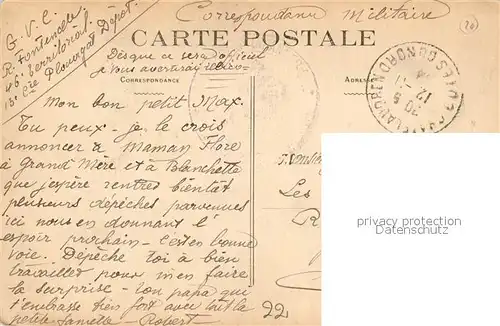 Correspondance Militaire
G.V.C.
R. Fontenelle
46e territorial
15e Cie Plouagat Dépôt
CARTE POSTALE
Dès que ce sera officiel
je vous avertirai
CORRESPONDANCE
ADRESSE
Mon bon petit Max.
Tu peux - je le crois
annoncer à Maman Flore
à Grand Mère et à Blanchette
que j'espère rentrer bientôt
plusieurs depêches parvenues
ici nous en donnant l'
espoir prochain - c'est en bonne
voie. Dépêche toi à bien
travailler pour m'en faire
la surprise - ton papa qui
t'embrasse bien fort avec toute la
petite famille - Robert -
Les
22
privacy protection
www.oldthing.de
COTES DU NORD